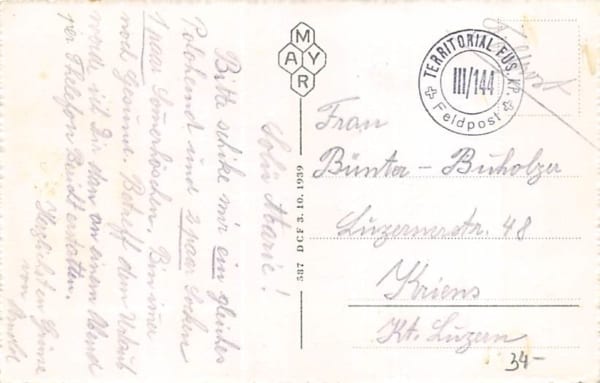 Salü Marie!
Bitte schike mir ein gleiches
Polohemd und 2 paar Socken
1 paar Unterhosen. Bin imer
noch Gesund. Betreff dem Urlaub
werde ich Dir dan an einem Abend
per Telefon Bericht erstatten.
Herzlichsten Grüsse
von
MAYR
587 DCF 3.10.1939
Feldpost
TERRITORIAL FÜS. KP.
III/144
Feldpost
Frau
Bünter - Buholzer
Luzernerstr. 48
Kriens
Kt. Luzern
34-